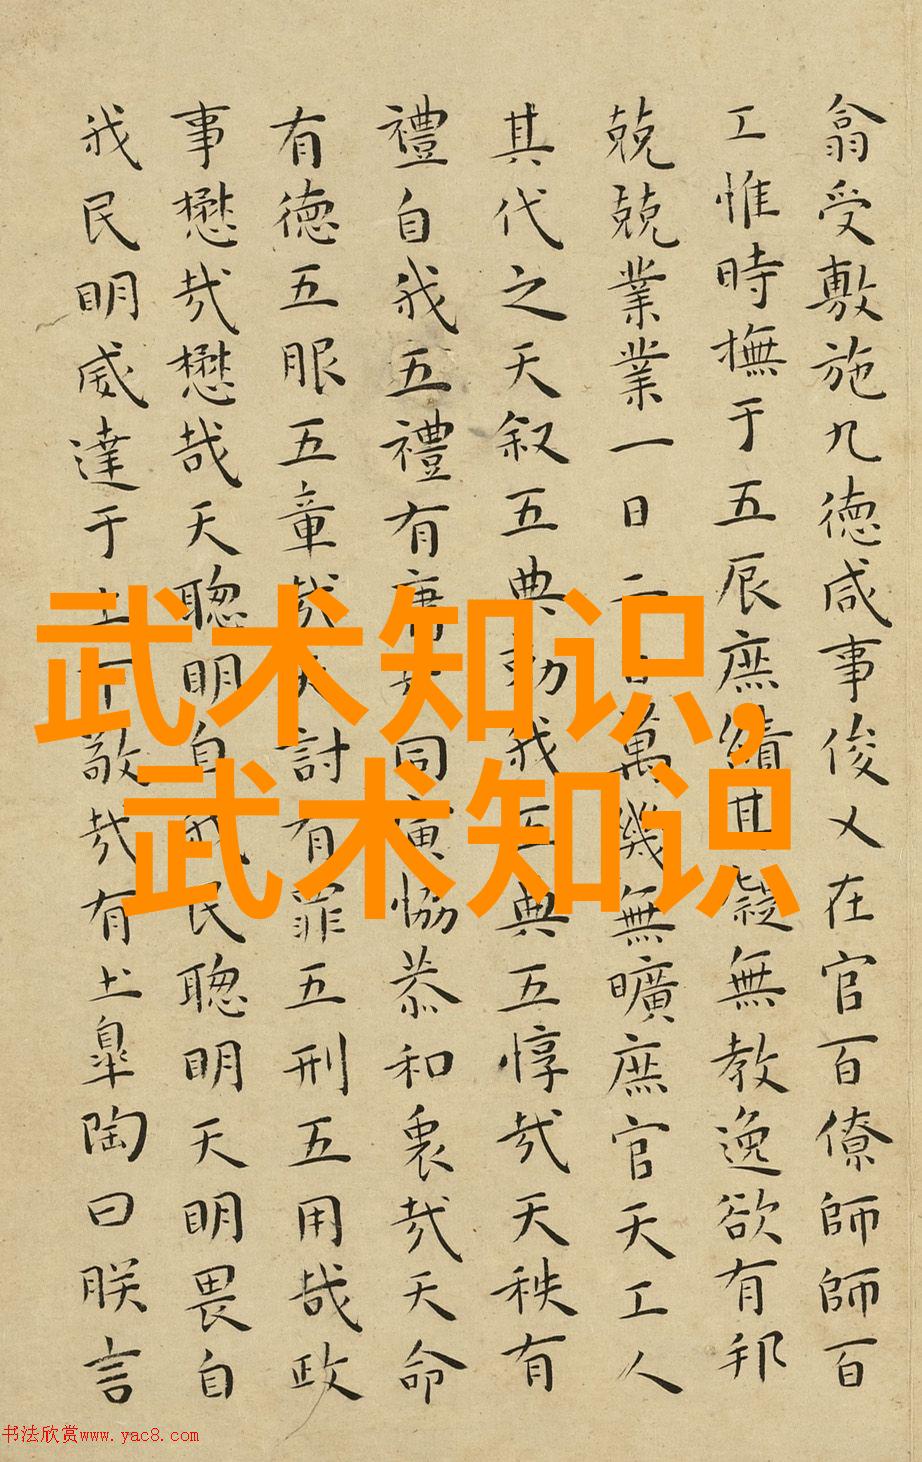 翕受敷施九徳咸事俊乂在官百僚師師百
工惟時撫于五辰庶績其凝無教逸欲有邦
兢兢業業一日二日萬幾無曠庶官天工人
其代之天叙五典勑我五典五惇哉天秩有
禮自我五禮有庸哉同寅協恭和衷哉天命
有徳五服五章哉天討有罪五刑五用哉政
事懋哉懋哉天聰明自我民聰明天明畏自
我民明威達于上下敬哉有土皋陶曰朕言
武术知识,
武术知识
书法欣赏www.yac8.com